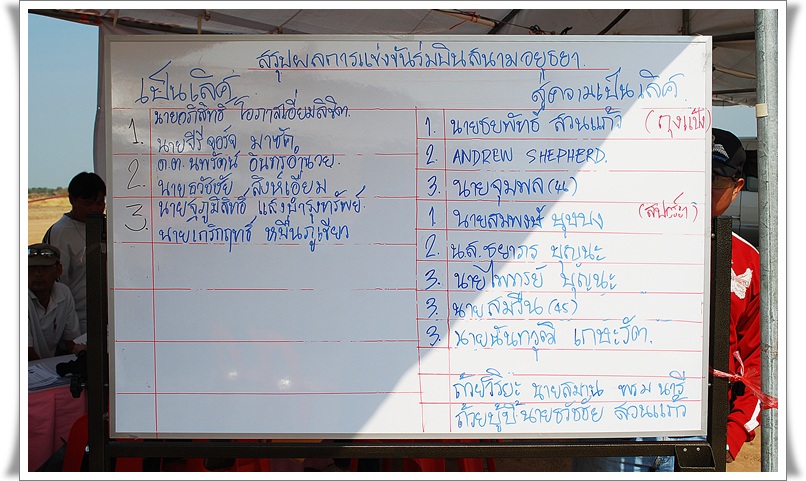 สรุปผลการแข่งขันร่มบินสนามอยุธยา
เป็นเลิศ
1. นายอภิสิทธิ์ โอภาสเอี่ยมลิขิต
นายจีรี จอร์จ มาซัค
2. ด.ต. นพรัตน์ อินทรอำนวย
นายธวัชชัย สิงห์เอี่ยม
3. นายภูมิสิทธิ์ แสงบำรุงทรัพย์
นายเกริกฤทธิ์ หมื่นภูเขียว
สู่ความเป็นเลิศ
1. นายธยพัทธ์ สวนแก้ว (ถุงแป้ง)
2. ANDREW SHEPHERD.
3. นายจุมพล
1. นายสมพงษ์ บุษบง
2. น.ส. ธยาภร ปุญนะ
3. นายไพฑูรย์ ปุญนะ
3. นายสมรื่น (45)
3. นายนันทวุฒิ เกษะรัต
ถ้วยวิริยะ นายสมาน พรมนารี
ถ้วยปู่ปี้ นายธวัชชัย สวนแก้ว